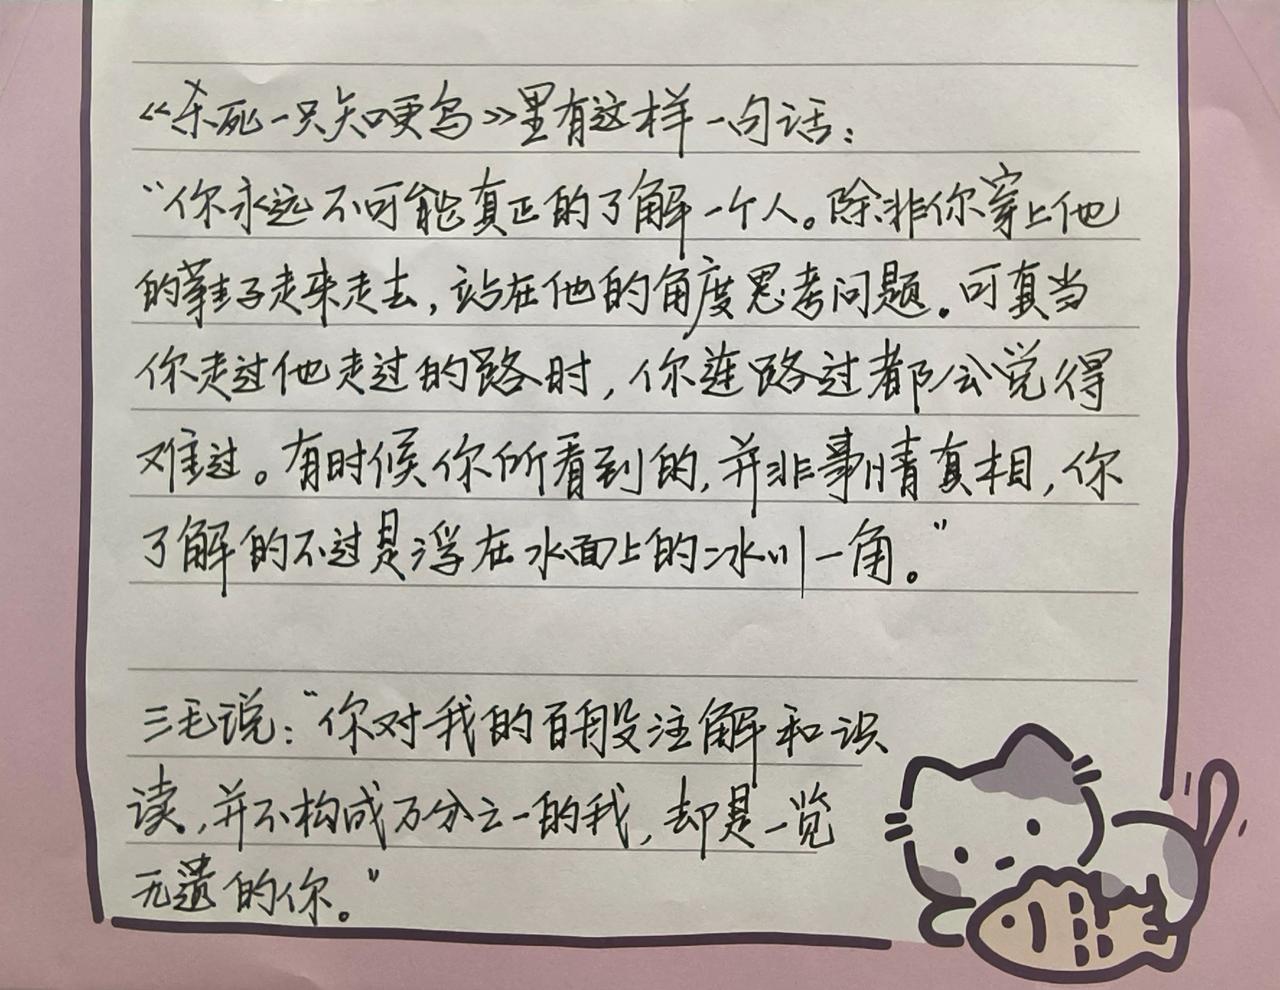 《杀死一只知更鸟》里有这样一句话：
“你永远不可能真正的了解一个人。除非你穿上他
的鞋子走来走去，站在他的角度思考问题。可真当
你走过他走过的路时，你连路过都会觉得
难过。有时候你所看到的，并非事情真相，你
了解的不过是浮在水面上的冰川一角。”
三毛说：“你对我的百般注解和识
读，并不构成万分之一的我，却是一览
无遗的你。”